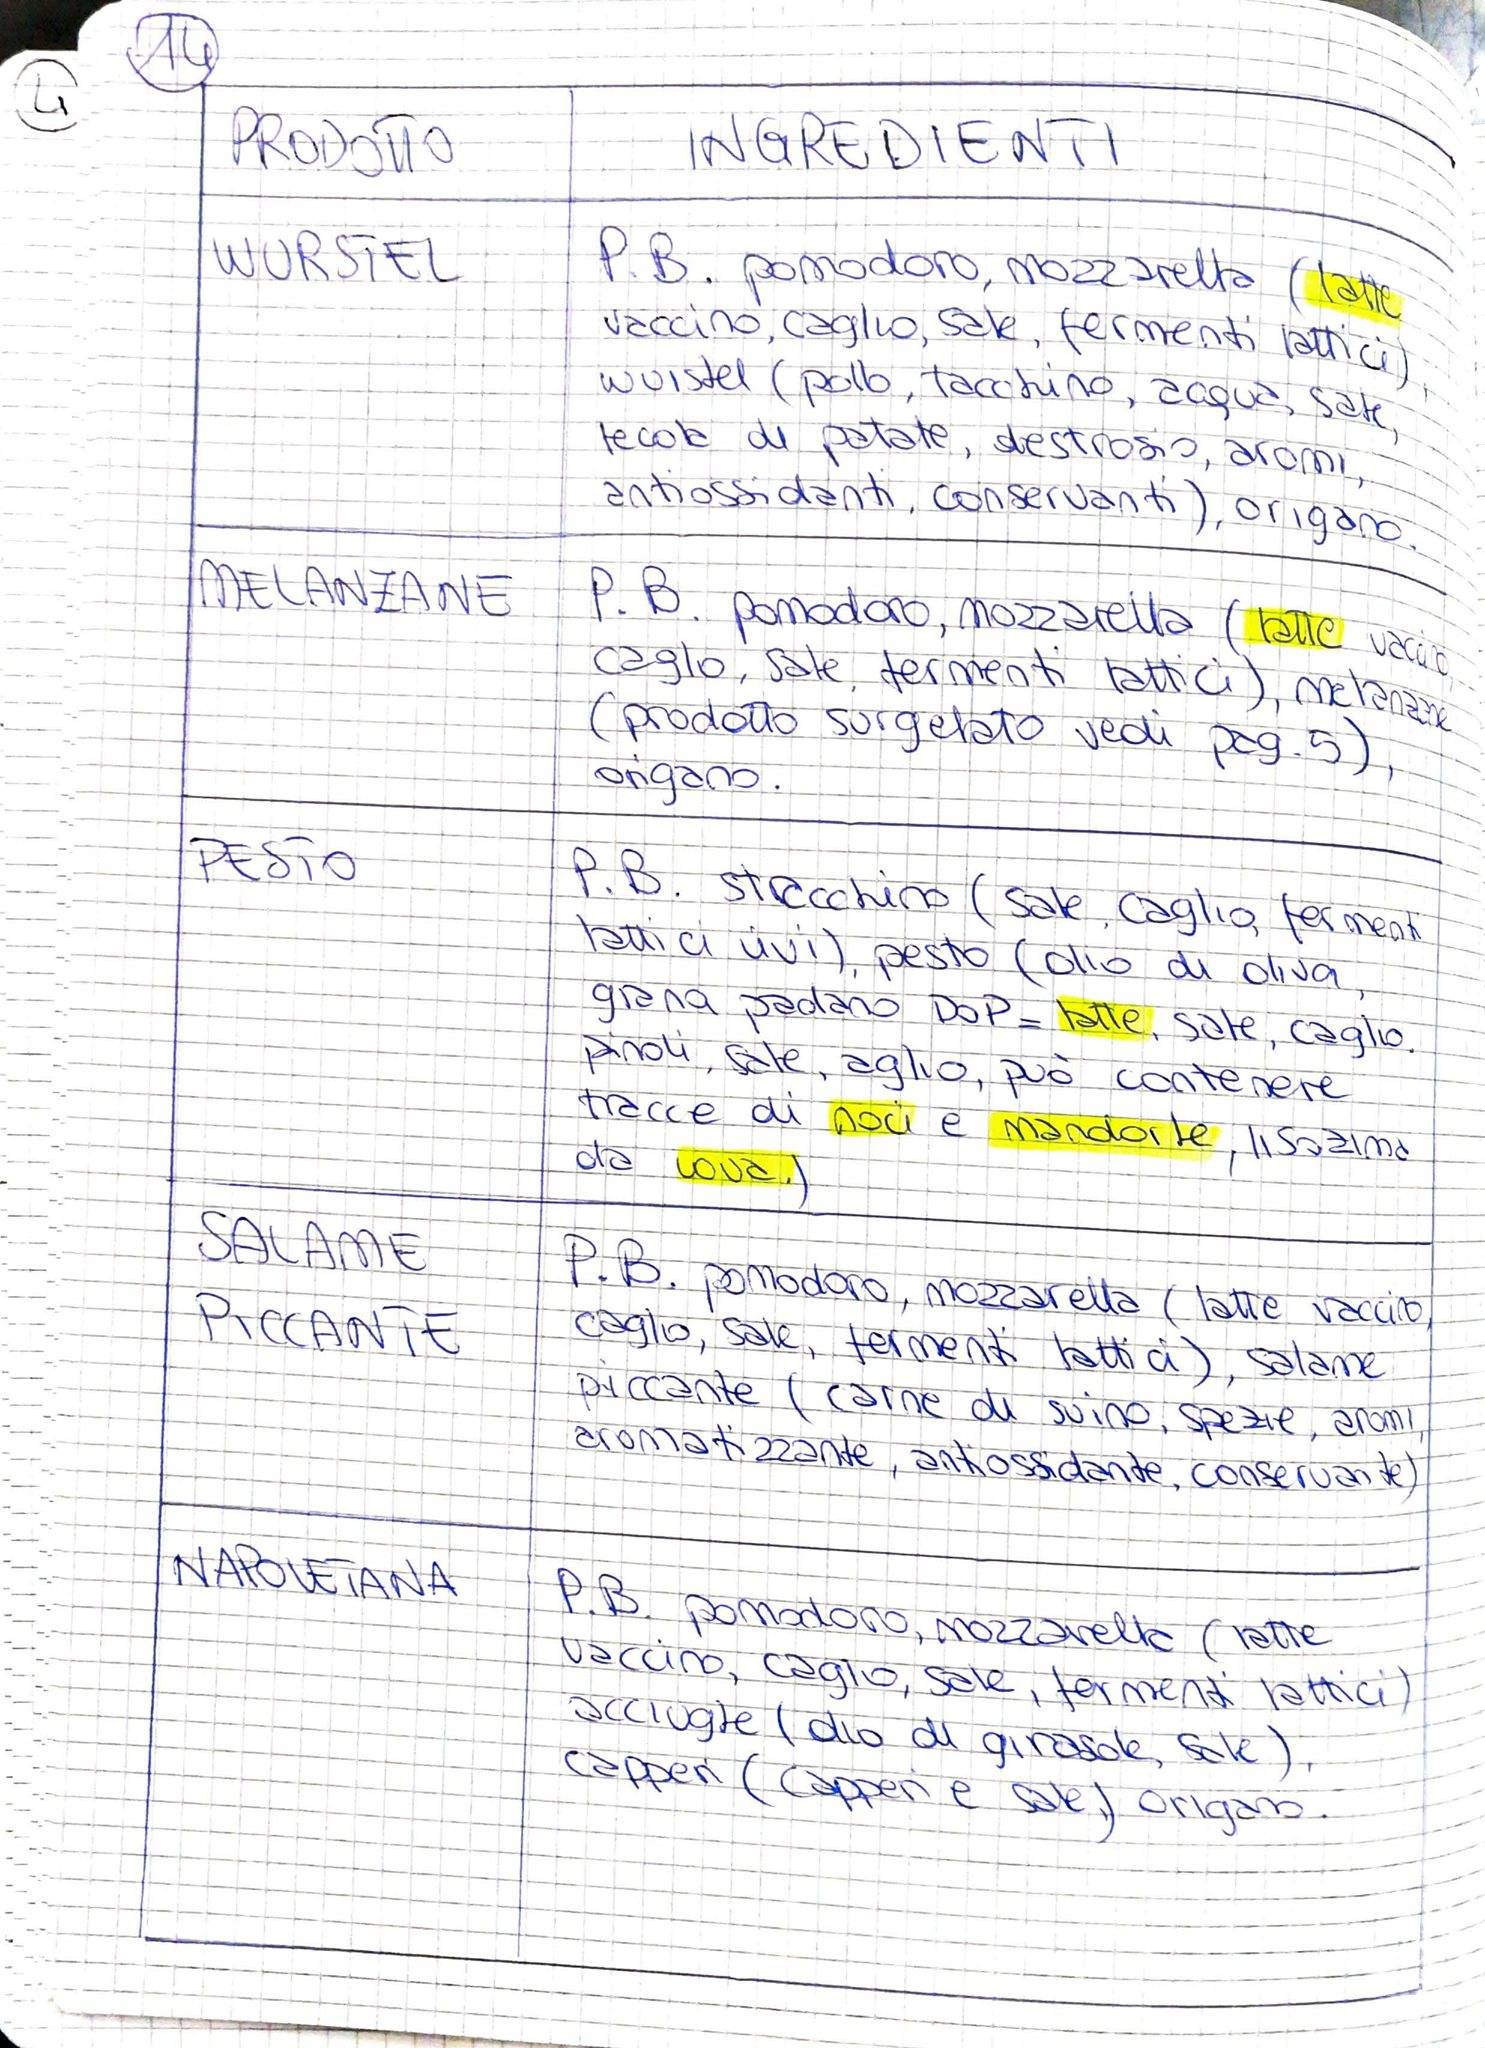 14
4
PRODOTTO INGREDIENTI
WURSTEL
P.B. pomodoro, mozzarella (latte
vaccino, caglio, sale, fermenti lattici),
wurstel (pollo, tacchino, acqua, sale,
fecola di patate, destrosio, aromi,
antiossidanti, conservanti), origano.
MELANZANE
P.B. pomodoro, mozzarella (latte vaccino,
caglio, sale, fermenti lattici), melanzane
(prodotto surgelato vedi pag. 5),
origano.
PESTO
P.B. stracchino (sale, caglio, fermenti
lattici vivi), pesto (olio di oliva,
grana padano DOP = latte, sale, caglio.
pinoli, sale, aglio, può contenere
tracce di noci e mandorle, lisozima
da uova.)
SALAME
PICCANTE
P.B. pomodoro, mozzarella (latte vaccino,
caglio, sale, fermenti lattici), salame
piccante (carne di suino, spezie, aromi,
aromatizzante, antiossidante, conservante)
NAPOLETANA
P.B. pomodoro, mozzarella (latte
vaccino, caglio, sale, fermenti lattici)
acciughe (olio di girasole, sale),
capperi (capperi e sale,) origano.